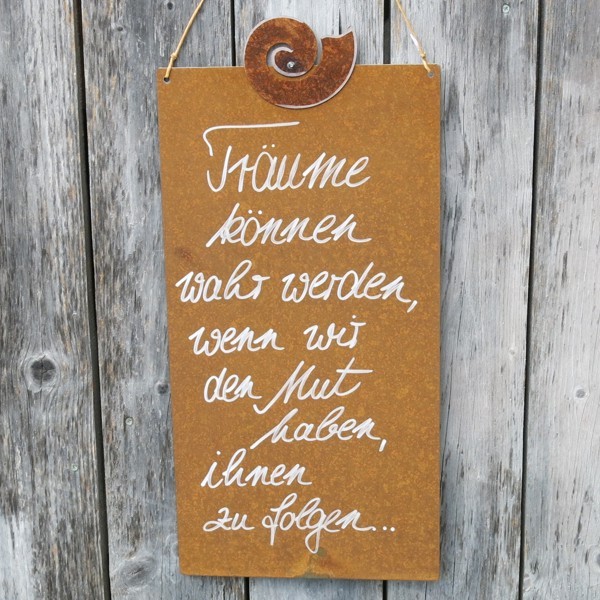 Träume
können
wahr werden,
wenn wir
den Mut
haben,
ihnen
zu folgen...